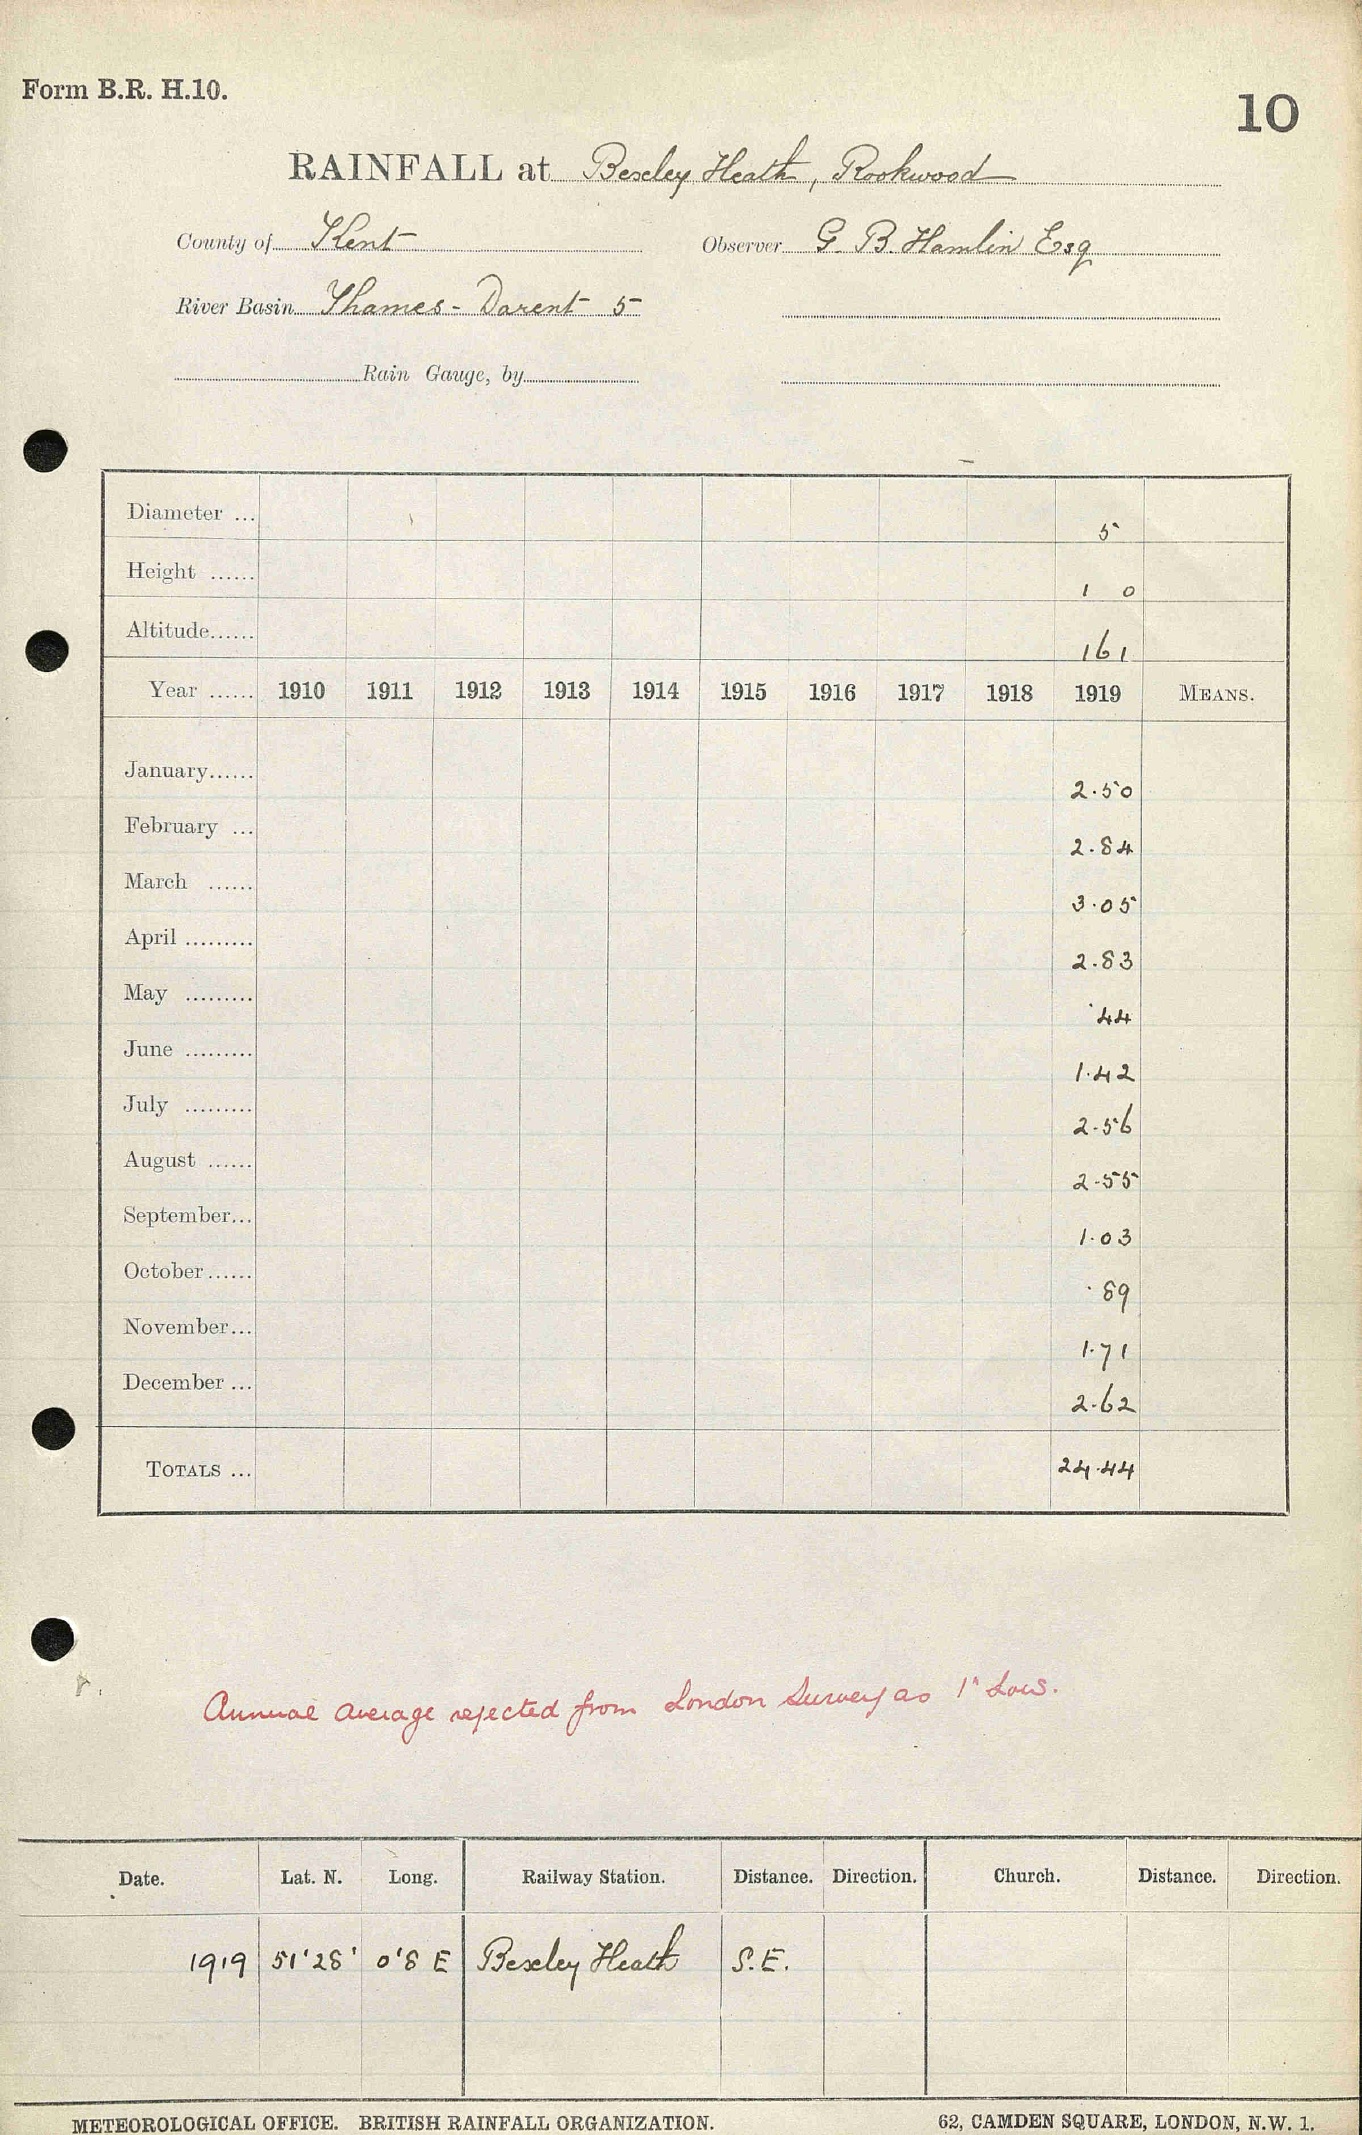 Form B.R. H.10.
10
RAINFALL at Bexley Heath, Rookwood
County of Kent Observer G. B. Hamlin Esq
River Basin Thames - Darent 5
Rain Gauge, by
Diameter ... 5
Height ...... 1 0
Altitude...... 161
Year ...... 1910 1911 1912 1913 1914 1915 1916 1917 1918 1919 MEANS.
January...... 2.50
February ... 2.84
March ...... 3.05
April ......... 2.83
May ......... .44
June ......... 1.42
July ......... 2.56
August ...... 2.55
September... 1.03
October...... .89
November... 1.71
December ... 2.62
TOTALS ... 24.44
Annual average rejected from London Survey as 1" Low.
Date. Lat. N. Long. Railway Station. Distance. Direction. Church. Distance. Direction.
1919 51'28' 0'8 E Bexley Heath S.E.
METEOROLOGICAL OFFICE. BRITISH RAINFALL ORGANIZATION. 62, CAMDEN SQUARE, LONDON, N.W. 1.